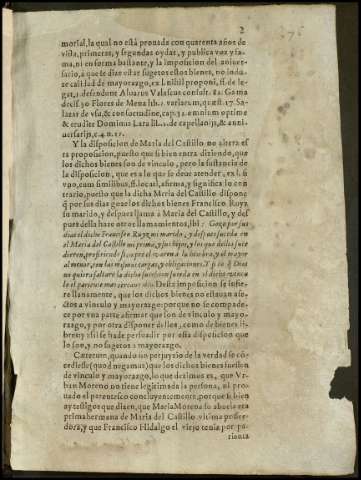 2
morial, la qual no está prouada con quarenta años de
vista, primeras, y segundas oydas, y publica voz y fa-
ma, ni en forma bastante, y la imposicion del aniuer-
sario, a que se dize estar sugetos estos bienes, no indu-
ze calidad de mayorazgo, ex l. nihil proponi, ff. de le-
gat. 1. defendunt Aluarus Valascus consult. Gama
decis. Flores de Mena lib. 1. variarum, quæst. 17. Sa-
lazar de vsu, & consuetudine, cap. omnium optime
& erudite Dominus Lara lib. de capellanijs, & anni-
uersarijs, c. 4. n. 17.
Y la disposicion de Maria del Castillo no altera es-
ta proposicion, puesto que si bien entra diziendo, que
los dichos bienes son de vinculo, pero la sustancia de
la disposicion, que es a lo que se deue atender, ex l. si
vno, cum similibus, ff. locati, afirma, y significa lo con-
trario, puesto que la dicha Maria del Castillo dispone,
q̃ por sus dias goze los dichos bienes Francisco Ruyz
su marido, y despues llama à Maria del Castillo, y des-
pues della haze otros llamamientos, ibi: Goze por sus
dias el dicho Francisco Ruyz mi marido, y despues suceda en
el Maria del Castillo mi prima, y sus hijos, y los que dellos suce-
dieren, prefiriendose siempre el varon a la hembra, y el mayor
al menor, con las mismas cargas, y obligaciones. Y si lo q̃ Dios
no quiera faltare la dicha sucession suceda en el dicho vincu-
lo el pariente mas cercano mio. Desta imposicion se infie-
re llanamente, que los dichos bienes no estauan afec-
tos a vinculo y mayorazgo: porque no se compade-
ce por vna parte afirmar que son de vinculo y mayo-
razgo, y por otra disponer dellos, como de bienes li-
bres: y assi se ha de persuadir por esta disposicion que
lo son, y no sugetos a mayorazgo.
Cæterum, quando sin perjuyzio de la verdad se cõ-
cediesse (quod negamus) que los dichos bienes fuessen
de vinculo y mayorazgo, lo que dezimos es, que Vr-
ban Moreno no tiene legitimada la persona, ni pro-
uado el parentesco concluyentemente, porque si bien
ay testigos que dizen, que Maria Moreno su abuela era
prima hermana de Maria del Castillo, vltima possee-
dora, y que Francisco Hidalgo el viejo tenia por pa-
rienta